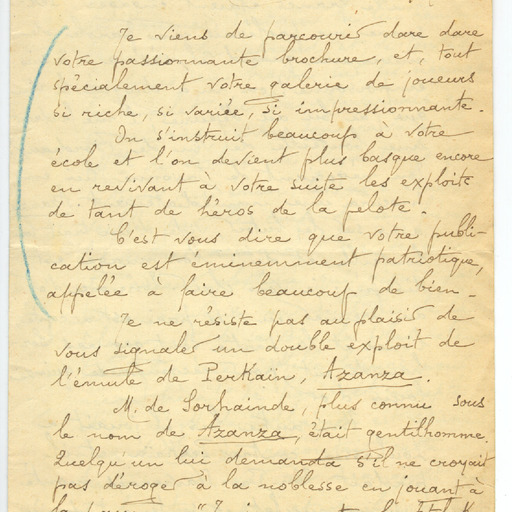 Je viens de parcourir dare dare
votre passionnante brochure, et, tout
spécialement votre galerie de joueurs
si riche, si variée, si impressionnante.
On s'instruit beaucoup à votre
école et l'on devient plus basque encore
en revivant à votre suite les exploits
de tant de héros de la pelote.
C'est vous dire que votre publi-
cation est éminemment patriotique,
appelée à faire beaucoup de bien.
Je ne résiste pas au plaisir de
vous signaler un double exploit de
l'émule de Perkaïn, Azanza.
M. de Sorhainde, plus connu sous
le nom de Azanza, était gentilhomme.
Quelqu'un lui demanda s'il ne croyait
pas déroger à la noblesse en jouant à